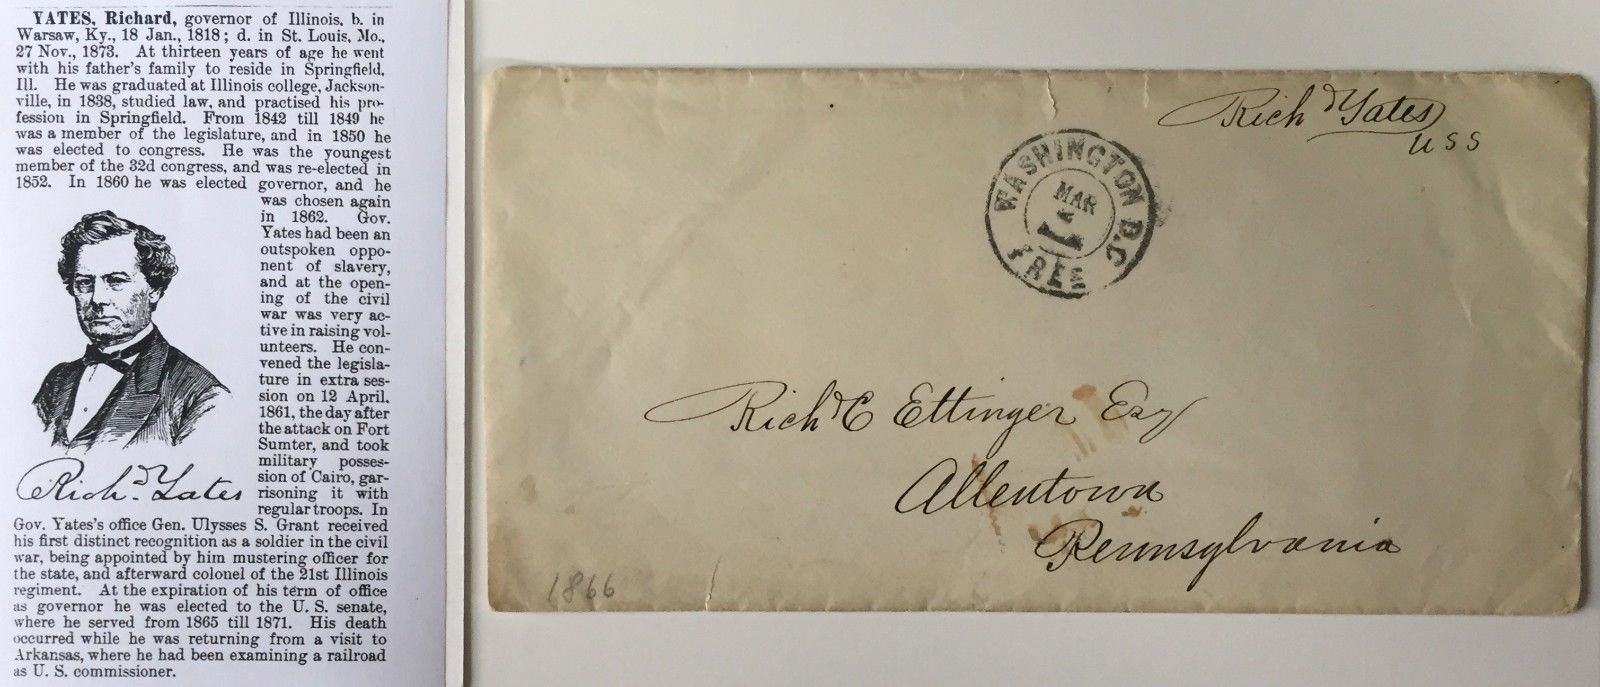 YATES, Richard, governor of Illinois, b. in
Warsaw, Ky., 18 Jan., 1818; d. in St. Louis, Mo.,
27 Nov., 1873. At thirteen years of age he went
with his father's family to reside in Springfield,
Ill. He was graduated at Illinois college, Jackson-
ville, in 1838, studied law, and practised his pro-
fession in Springfield. From 1842 till 1849 he
was a member of the legislature, and in 1850 he
was elected to congress. He was the youngest
member of the 32d congress, and was re-elected in
1852. In 1860 he was elected governor, and he
was chosen again
in 1862. Gov.
Yates had been an
outspoken oppo-
nent of slavery,
and at the open-
ing of the civil
war was very ac-
tive in raising vol-
unteers. He con-
vened the legisla-
ture in extra ses-
sion on 12 April,
1861, the day after
the attack on Fort
Sumter, and took
military posses-
sion of Cairo, gar-
risoning it with
regular troops. In
Richd. Yates
Gov. Yates's office Gen. Ulysses S. Grant received
his first distinct recognition as a soldier in the civil
war, being appointed by him mustering officer for
the state, and afterward colonel of the 21st Illinois
regiment. At the expiration of his term of office
as governor he was elected to the U. S. senate,
where he served from 1865 till 1871. His death
occurred while he was returning from a visit to
Arkansas, where he had been examining a railroad
as U. S. commissioner.
Richd Yates
USS
WASHINGTON D.C.
MAR
FREE
Richd C Ettinger Esq
Allentown
Pennsylvania
1866